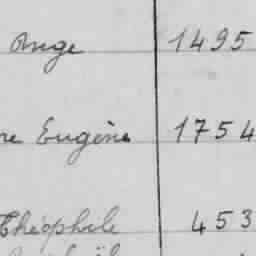 Ange 1495
re Eugène 1754
Théophile 453